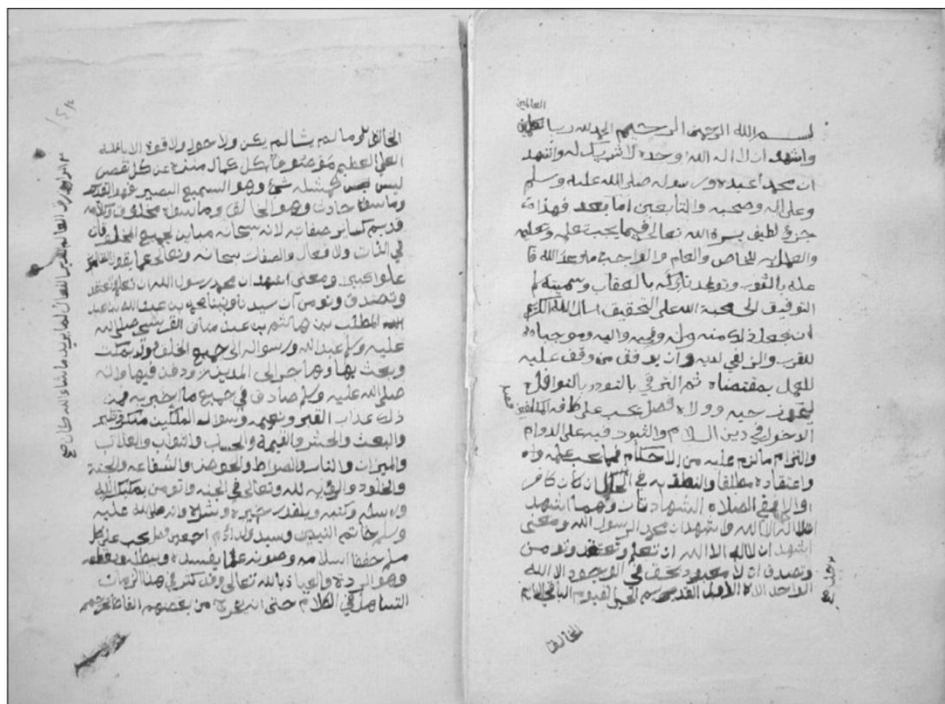 العالمين
بسم الله الرحمن الرحيم الحمد لله رب
واشهد ان لا اله الا الله وحده لا شريك له واشهد
ان محمدا عبده ورسوله صلى الله عليه وسلم
وعلى اله وصحبه والتابعين اما بعد فهذا
جزء لطيف يسره الله تعالى فيما يجب علمه وتعليمه
والعمل به للخاص والعام والواجب ما وعد الله فا
عله بالثوب وتوعد تاركه بالعقاب وسميته سلم
التوفيق الى محبة الله على التحقيق اسال الله الكريم
ان يجعل ذلك منه وله وفيه واليه وموجبا
للقرب والزلفى لديه وان يوفق من وقف عليه
للعمل بمقتضاه ثم الترقي بالتودد بالنوافل
ليحوز حبه وولاه فصل يجب على كافة المكلفين
الدخول في دين الاسلام والثبوت فيه على الدوام
والتزام ما لزم عليه من الاحكام فمما يجب علمه
واعتقاده مطلقا والنطق به في الحال ان كان كافر
والا ففي الصلاه الشهادتان وهما اشهد
ان لا اله الا الله واشهد ان محمد الرسول الله ومعنى
اشهد ان لا اله الا الله ان تعلم وتعتقد وتومن
وتصدق ان لا معبود بحق في الوجود الا الله
الواحد الاحد الاول القديم الحي القيوم الباقي الدايم
الخالق
الخالق وما لم يشا لم يكن ولا حول ولا قوة الا بالله
العلي العظيم موصوف بكل كمال منزه عن كل نقص
ليس كمثله شئ وهو السميع البصير فهو القديم
وما سواه حادث وهو الخالق وما سواه مخلوق وكلامه
قديم كسائر صفاته لانه سبحانه مباين لجميع المخلوقات
في الذات والافعال والصفات سبحانه وتعالى عما يقول الظالمون
علوا كبيرا ومعنى اشهد ان محمد رسول الله ان تعلم وتعتقد
وتصدق وتومن ان سيدنا ونبينا محمد بن عبد الله بن عبد
المطلب بن هاشم بن عبد مناف القرشي صلى الله
عليه وسلم عبد الله ورسوله الى جميع الخلق ولد بمكت
وبعث بها وهاجر الى المدينة ودفن فيها وانه
صلى الله عليه وسلم صادق في جميع ما اخبر به فمن
ذلك عذاب القبر ونعيمه وسوال الملكين منكر ونكير
والبعث والحشر والقيمة والحساب والثواب والعذاب
والميزان والنار والصراط والحوض والشفاعه والجنة
والخلود والرؤيه لله وتعالى في الجنه وان تومن بملائكة الله
ورسله وكتبه وبالقدر خيره وشره وانه صلى الله عليه
وسلم خاتم النبيين وسيد ولد ادم اجمعين فصل يجب على كل
مسلم حفظ اسلامه وصونه عما يفسده ويبطله ويقطعه
وهو الردة والعياذ بالله تعالى وقد كثر في هذا الزمان
التساهل في الكلام حتى انه يخرج من بعضهم الفاظ تخرجهم